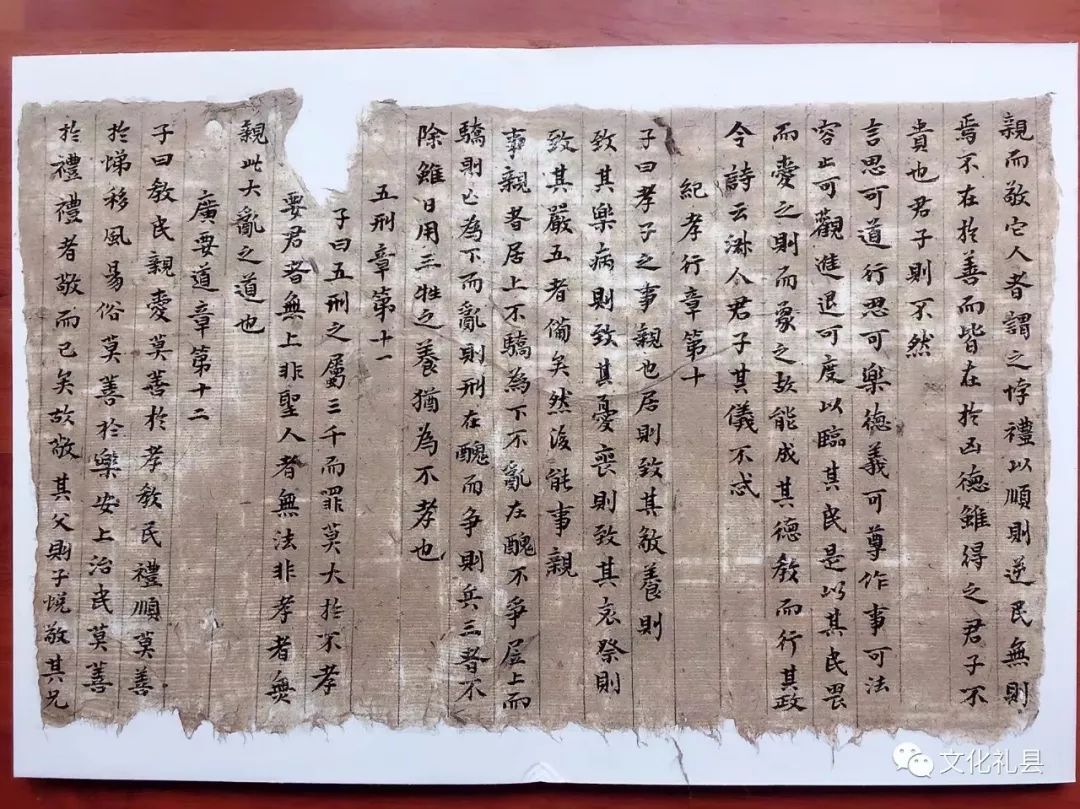 親而敬它人者謂之悖禮以順則逆民無則
焉不在於善而皆在於凶德雖得之君子不
貴也君子則不然
言思可道行思可樂德義可尊作事可法
容止可觀進退可度以臨其民是以其民畏
而愛之則而象之故能成其德教而行其政
令詩云淑人君子其儀不忒
紀孝行章第十
子曰孝子之事親也居則致其敬養則
致其樂病則致其憂喪則致其哀祭則
致其嚴五者備矣然後能事親
事親者居上不驕為下不亂在醜不爭居上而
驕則亡為下而亂則刑在醜而爭則兵三者不
除雖日用三牲之養猶為不孝也
五刑章第十一
子曰五刑之屬三千而罪莫大於不孝
要君者無上非聖人者無法非孝者無
親此大亂之道也
廣要道章第十二
子曰教民親愛莫善於孝教民禮順莫善
於悌移風易俗莫善於樂安上治民莫善
於禮禮者敬而已矣故敬其父則子悅敬其兄
文化礼县